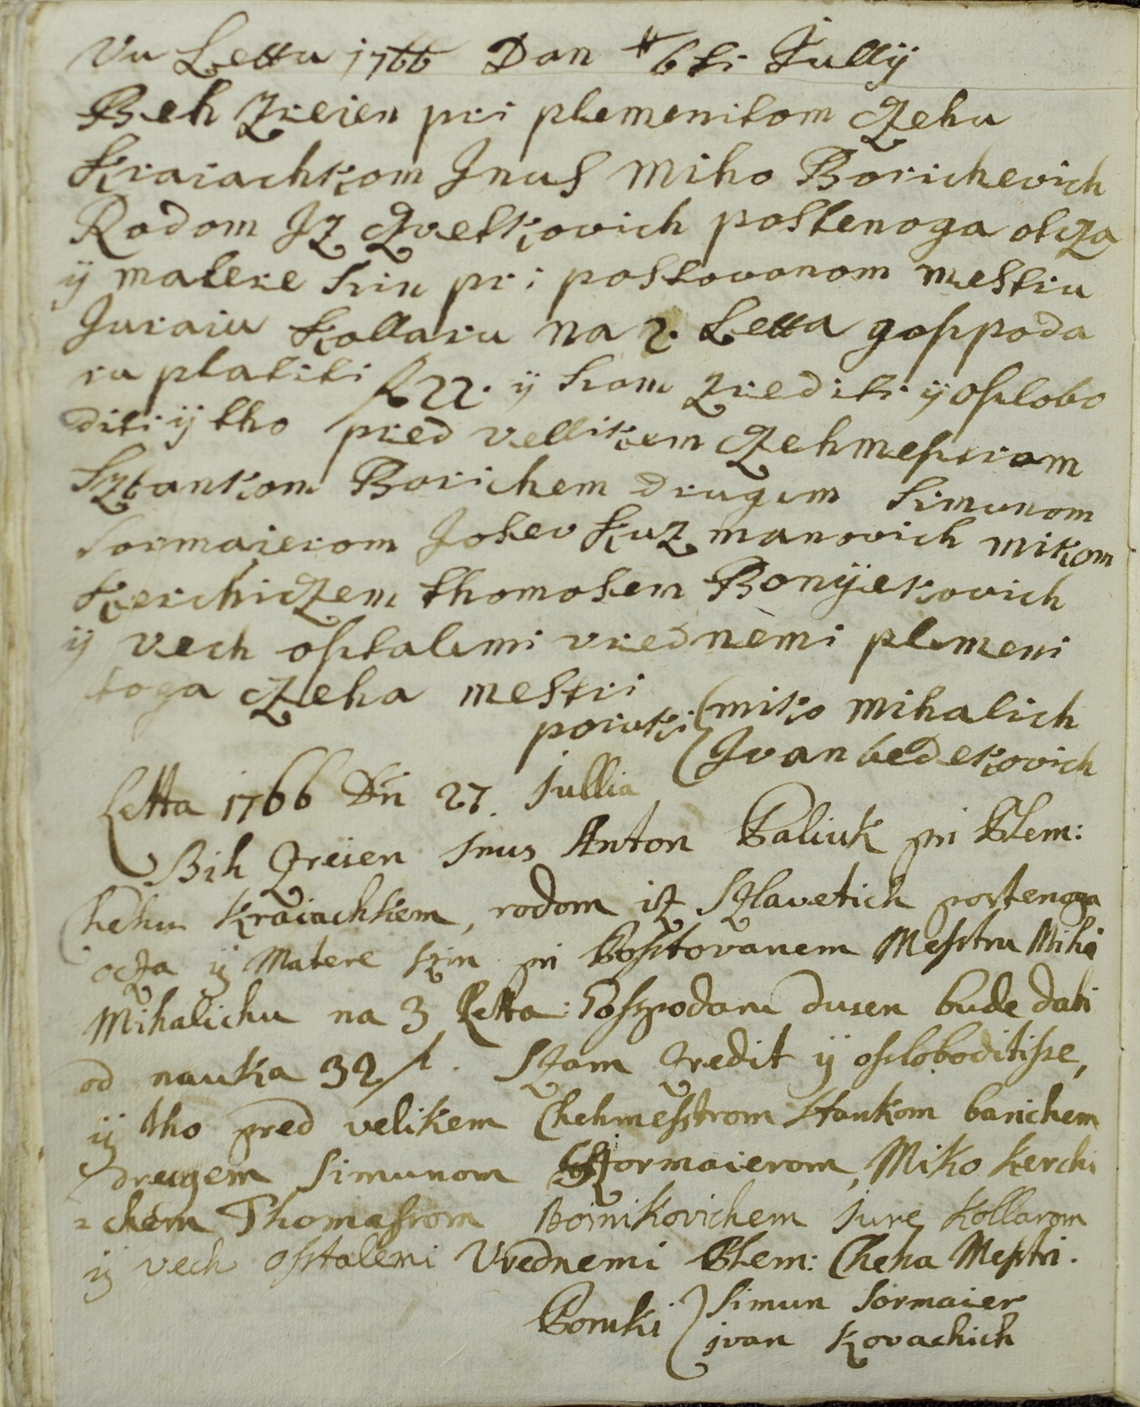 Vu Letta 1766 Dan 6ti Jullÿ
Beh Zreien pri plemenitom Czehu
Kraiachkom Inus Miho Borichevich
Rodom Iz Czvetkovich postenoga otcza
ÿ matere sin pri postovanom mestru
Juraiu Kollaru na 2. Letta gospoda
ru platiti f 22. ÿ Kom zrediti ÿ oslobo
diti ÿ tho pred vellikem Czehmestrom
Sztankom Borichem drugim Simunom
Sormaierom Josev Kuzmanovich mikom
Kerchiczem thomosem Bonÿekovich
ÿ vech ostalimi vrednèmi plemeni
toga Czeha mestri
poruki (miko mihalich
(Ivan bedekovich
Letta 1766 Dn 27. Jullia
Bih Zreien Inus Anton Paliuk pri Plem:
Chehu Kraiachkem, rodom iz Szlavetich postenoga
ocza ÿ Matere szin pri Postovanem Mestru Miha
Mihalichu na 3 Letta: Goszpodaru dusen bude dati
od nauka 32 f. Szam Zredit ÿ osloboditisse,
ÿ tho pred velikem Chehmestrom Stankom barichem
drugem Simunom Sormaierom, Miko Kerchi
chem Thomassom Bornikovichem Jure Kollarom
ÿ vech ostalemi Vrednemi Plem: Cheha Mestri.
Poruki ) Simun Sormaier
ivan Kovachich